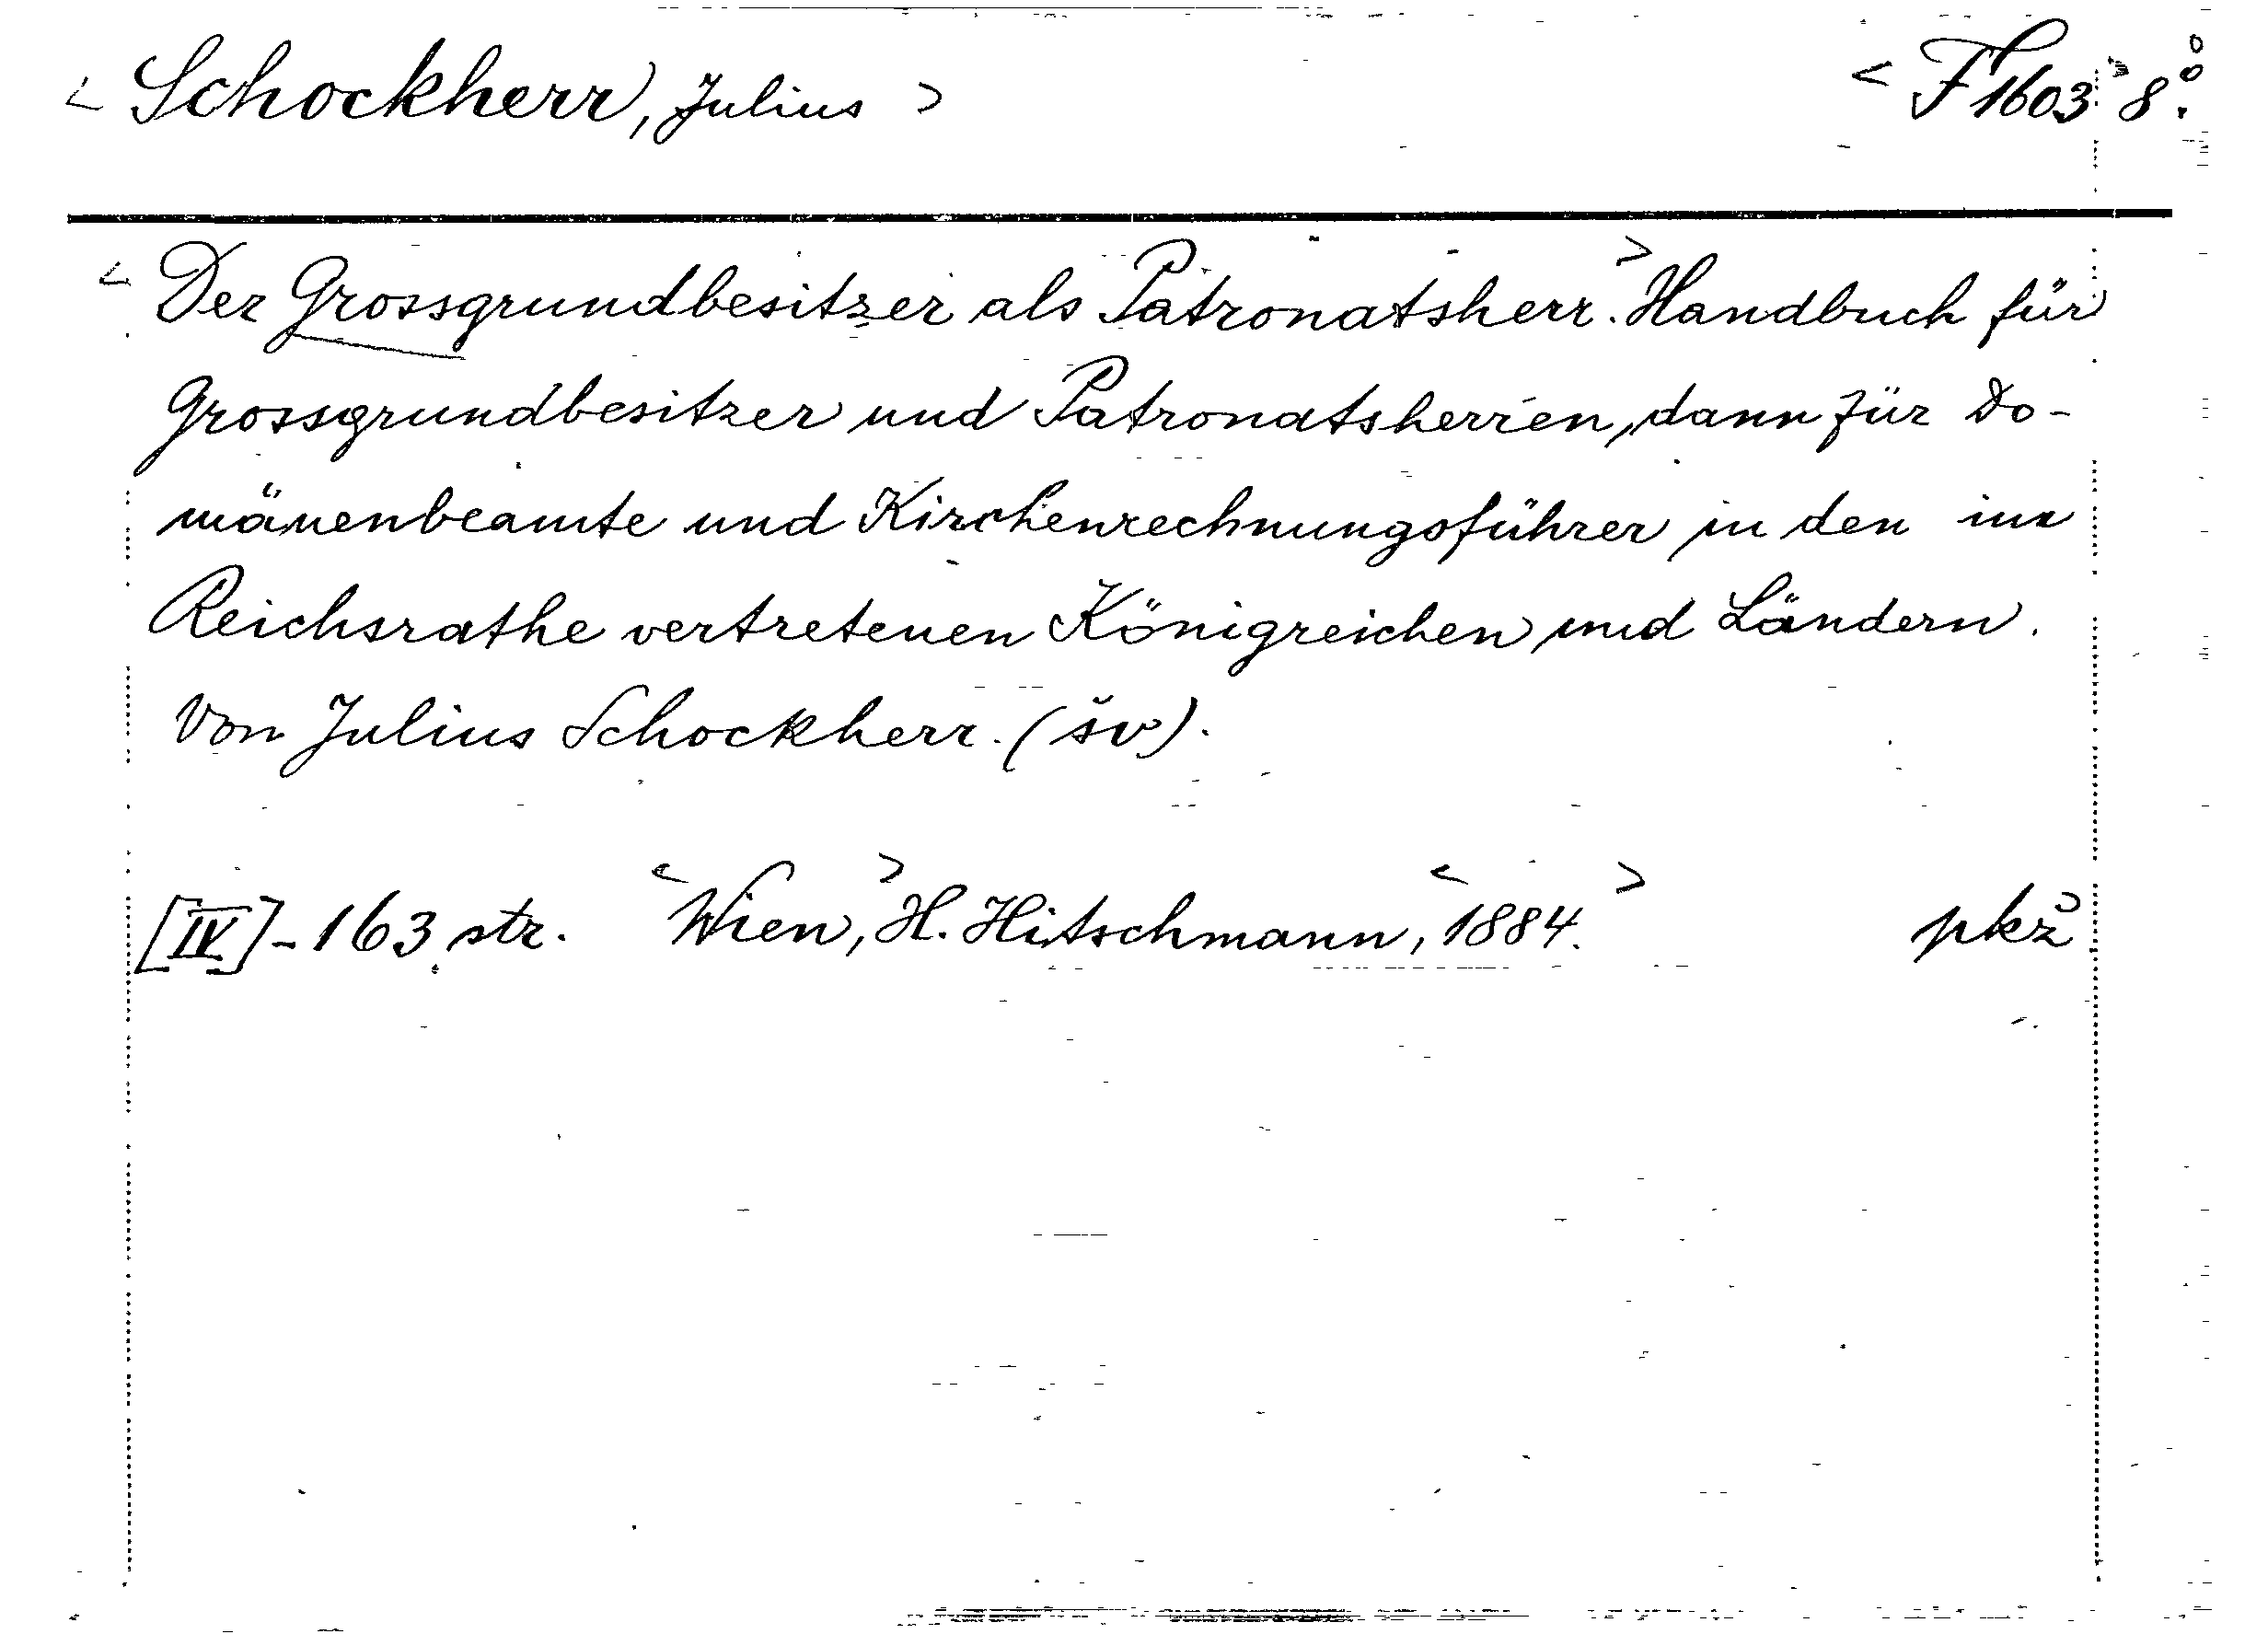 < Schockherr, Julius > < F 1603 > 8°.
< Der Grossgrundbesitzer als Patronatsherr. > Handbuch für
Grossgrundbesitzer und Patronatsherren, dann für Do-
mänenbeamte und Kirchenrechnungsführer in den im
Reichsrathe vertretenen Königreichen und Ländern.
Von Julius Schockherr. (šv).
[IV]-163 str. < Wien, > H. Hitschmann, < 1884. > pkž